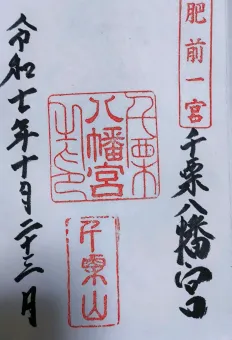 肥前一宮
千栗八幡宮
千栗
八幡宮
之印
千栗山
令和七年十月二十三日